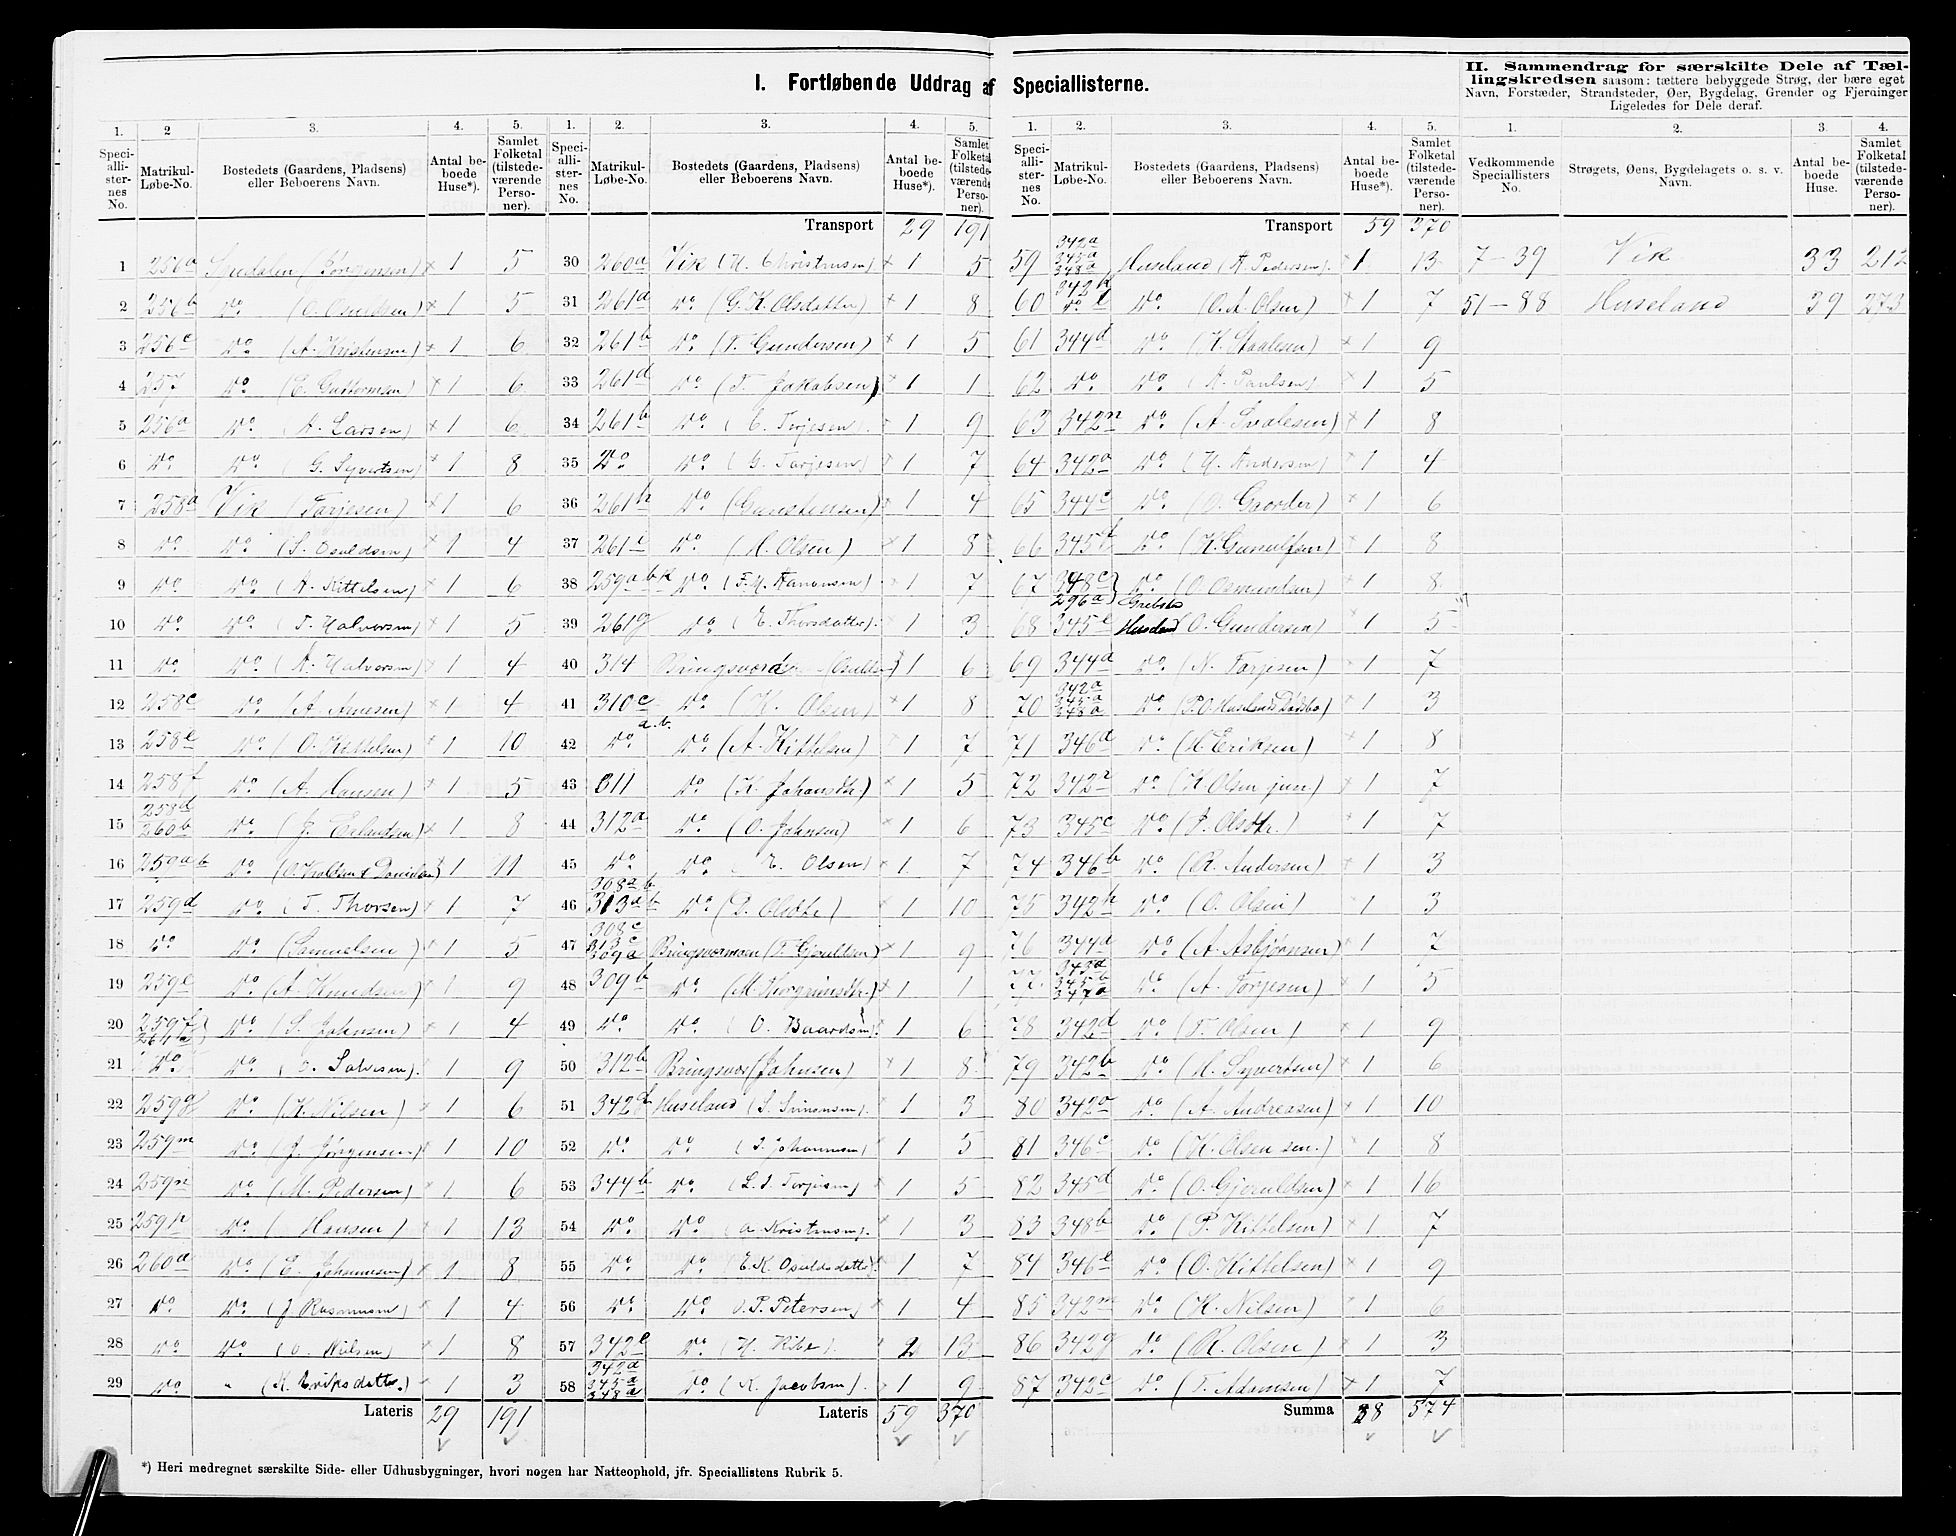 I. Fortløbende Uddrag af Speciallisterne.
II. Sammendrag for særskilte Dele af Tællingskredsen saasom: tættere bebyggede Strøg, der bære eget Navn, Forstæder, Strandsteder, Øer, Bygdelag, Grender og Fjerdinger Ligeledes for Dele deraf.
1. 2 3. 4. 5.
Speciallisternes No. Matrikul-Løbe-No. Bostedets (Gaardens, Pladsens) eller Beboerens Navn. Antal beboede Huse*). Samlet Folketal (tilstedeværende Personer).
1 256a (Jørgensen) × 1 5
2 256b do (O. Osuldsen) × 1 5
3 256c do (A. Kristensen) × 1 6
4 257 do (E. Guttormsen) × 1 6
5 256a do (A. Larsen) × 1 6
6 do do (G. Syvertsen) × 1 8
7 258a Vik (Tarjesen) × 1 6
8 do do (S. Osuldsen) × 1 4
9 do do (A. Kittelsen) × 1 6
10 do do (T. Halvorsen) × 1 5
11 do do (A. Halvorsen) × 1 4
12 258c do (A. Arnesen) × 1 4
13 258e do (O. Kittelsen) × 1 10
14 258f do (A. Hansen) × 1 5
15 258d 260b do (J. Erlandsen) × 1 8
16 259a b do 1 11
17 259d do (T. Thorsen) × 1 7
18 do do (Samuelsen) × 1 5
19 259e do (A. Knudsen) × 1 9
20 259f do (S. Johnsen) × 1 4
21 do do (O. Salvesen) 1 9
22 259g do (K. Nilsen) × 1 6
23 259m do (J. Jørgensen) × 1 10
24 259n do (M. Pedersen) × 1 6
25 259p do (Hansen) × 1 13
26 260a do (E. Johannesen) × 1 8
27 do do (J. Rasmussen) × 1 4
28 do do (O. Nilsen) × 1 8
29 do " (K. Eriksdatter.) × 1 3
Lateris 29 191
1. 2. 3. 4. 5.
Speciallisternes No. Matrikul-Løbe-No. Bostedets (Gaardens, Pladsens) eller Beboerens Navn. Antal beboede Huse*). Samlet Folketal (tilstedeværende Personer).
Transport 29 191
30 260a Vik (H. Christensen) × 1 5
31 261a do (G. K. Olsdatter) × 1 8
32 261b do (T. Gundersen) × 1 5
33 261d do (T. Jakobsen) × 1 1
34 261b do (E. Terjesen) 1 9
35 do do (G. Tarjesen) × 1 7
36 261h do (Gunstensen) × 1 4
37 261c do (H. Olsen) × 1 8
38 259a b k do 1 7
39 261g do (E. Thorsdatter). 1 3
40 314 Bringsvord 1 6
41 310c do (K. Olsen) × 1 8
42 a.b. do do (A. Kittelsen) × 1 7
43 311 do (K. Johansdtr.) × 1 5
44 312a do (O. Johnsen) × 1 6
45 do do (E. Olsen) × 1 7
46 308a b 313a b do × 1 10
47 308c 313c 309a (T. Gjeruldsen) × 1 9
48 309b do (M. Thorgrimsdtr.) × 1 1
49 do do (O. Baardsen). × 1 6
50 312b Bringsvor (Johnsen) × 1 8
51 342f Huseland (S. Simonsen). × 1 3
52 do do (J. Johannesen) × 1 5
53 344b do × 1 5
54 do do (A. Kristensen). × 1 3
55 do do (E. K. Osuldsdatter) 1 7
56 do do (O. P. Petersen) × 1 4
57 342e do 2 13
58 342a 345a 348a do (K. Jacobsen). × 1 9
Lateris 59 370
1. 2. 3. 4. 5.
Speciallisternes No. Matrikul-Løbe-No. Bostedets (Gaardens, Pladsens) eller Beboerens Navn. Antal beboede Huse*). Samlet Folketal (tilstedeværende Personer).
Transport 59 370
59 342a 345a 348a Huseland (A. Pedersen). × 1 13
60 342k do do (O. A. Olsen) × 1 7
61 344d do (K. Staalesen) × 1 9
62 do do (A. Paulsen) × 1 5
63 342n do (A. Svalesen) × 1 8
64 342a do (H. Andersen) × 1 4
65 344c do (O. Gaarder) × 1 6
66 345f do (K. Gunulfsen) × 1 8
67 348c 296a do (O. Osmundsen) × 1 8
68 345e Huseland (O. Gundersen) × 1 5
69 344a do (N. Tarjesen) × 1 7
70 342a 345a 348a do × 1 3
71 346d do (H. Eriksen) × 1 8
72 342i do (K. Olsen jun.) × 1 7
73 345c do (J. Olsdtr.) × 1 7
74 346b do (R. Andersen) × 1 3
75 342h do (O. Olsen) × 1 3
76 344a do (A. Asbjørnsen) × 1 7
77 343d 345b 347a do (A. Torjesen) × 1 5
78 342d do (T. Olsen) × 1 9
79 342b do (H. Syvertsen) × 1 6
80 342o do (A. Andreasen) × 1 10
81 346c do (K. Olsen sen.) × 1 8
82 345d do (O. Gjeruldsen) × 1 16
83 348b do (P. Kittelsen) × 1 7
84 346e do (O. Kittelsen) × 1 9
85 342m do (H. Nilsen) × 1 6
86 342g do (R. Olsen) × 1 3
87 342c do (T. Adamsen) × 1 7
Summa 88 574
1. 2. 3. 4.
Vedkommende Speciallisters No. Strøgets, Øens, Bygdelagets o. s. v. Navn. Antal beboede Huse. Samlet Folketal (tilstedeværende Personer).
7-39 Vik 33 212
51-88 Huseland 39 273
*) Heri medregnet særskilte Side- eller Udhusbygninger, hvori nogen har Natteophold, jfr. Speciallistens Rubrik 5.